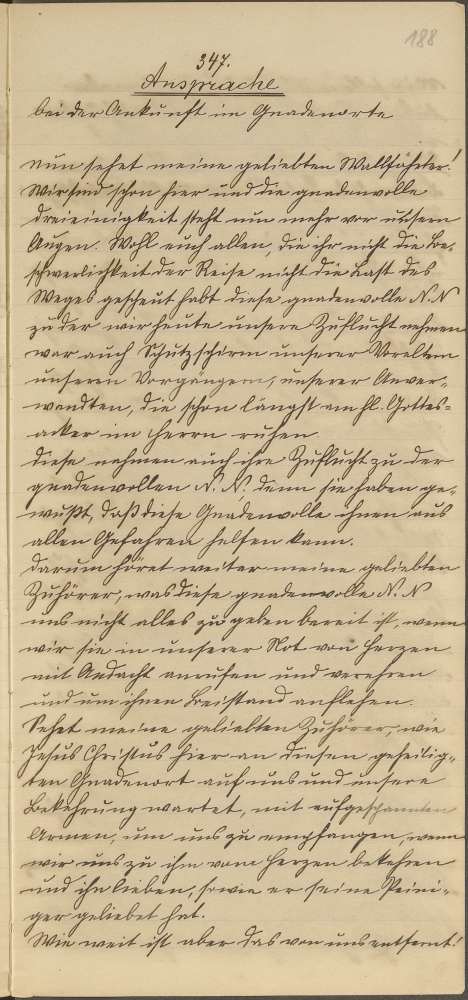 188
347.
Ansprache
bei der Ankunft im Gnadenorte
Nun sehet meine geliebten Wallfahrter!
Wir sind schon hier und die gnadenvolle
Dreieinigkeit steht nun mehr vor unsern
Augen. Wohl euch allen, die ihr nicht die Be-
schwerlichkeit der Reise nicht die Last des
Weges gescheut habt diese gnadenvolle N. N
zu der wir heute unsere Zuflucht nehmen
war auch Schutzschirm unserer Voreltern
unseren Vorgängern, unserer Anver-
wandten, die schon längst am hl. Gottes-
acker im Herrn ruhen
Diese nahmen auch ihre Zuflucht zu der
gnadenvollen N. N. denn sie haben ge-
wußt, daß diese Gnadenvolle ihnen aus
allen Gefahren helfen kann.
Darum höret weiter meine geliebten
Zuhörer, was diese gnadenvolle N. N
uns nicht alles zu geben bereit ist, wenn
wir sie in unserer Not von Herzen
mit Andacht anrufen und verehren
und um ihren Beistand anflehen.
Sehet meine geliebten Zuhörer, wie
Jesus Christus hier an diesen geheilig-
ten Gnadenort auf uns und unsere
Bekehrung wartet, mit aufgespannten
Armen, um uns zu empfangen, wenn
wir uns zu ihm vom Herzen bekehren
und ihn lieben, sowie er seine Peini-
ger geliebet hat.
Wie weit ist aber das von uns entfernt!